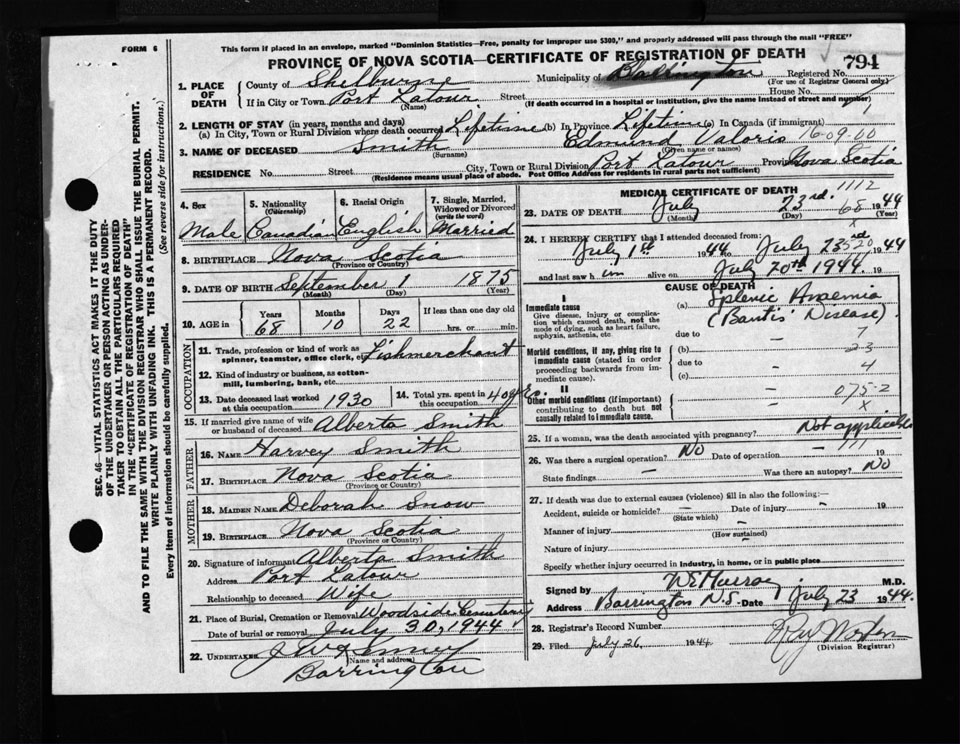 FORM 6
This form if placed in an envelope, marked "Dominion Statistics—Free, penalty for improper use $300," and properly addressed will pass through the mail "FREE"
PROVINCE OF NOVA SCOTIA—CERTIFICATE OF REGISTRATION OF DEATH
794
1. PLACE OF DEATH
County of Shelburne Municipality of Barrington Registered No.
(For use of Registrar General only)
If in City or Town Port Latour Street House No.
(Name) (If death occurred in a hospital or institution, give the name instead of street and number)
2. LENGTH OF STAY (in years, months and days)
(a) In City, Town or Rural Division where death occurred Lifetime (b) In Province Lifetime (c) In Canada (if immigrant)
3. NAME OF DECEASED Smith Edmund Valoris 76-09.00
(Surname) (Given name or names)
RESIDENCE No. Street City, Town or Rural Division Port Latour Province Nova Scotia
(Residence means usual place of abode. Post Office Address for residents in rural parts not sufficient)
4. Sex 5. Nationality (Citizenship) 6. Racial Origin 7. Single, Married, Widowed or Divorced (write the word)
Male Canadian English Married
8. BIRTHPLACE Nova Scotia
(Province or Country)
9. DATE OF BIRTH September 1 1875
(Month) (Day) (Year)
10. AGE in Years Months Days If less than one day old
68 10 22 hrs. or min.
OCCUPATION
11. Trade, profession or kind of work as spinner, teamster, office clerk, etc. Fishmerchant
12. Kind of industry or business, as cotton-mill, lumbering, bank, etc.
13. Date deceased last worked at this occupation 1930 14. Total yrs. spent in this occupation 40 yrs.
15. If married give name of wife or husband of deceased Alberta Smith
FATHER
16. NAME Harvey Smith
17. BIRTHPLACE Nova Scotia
(Province or Country)
MOTHER
18. MAIDEN NAME Deborah Snow
19. BIRTHPLACE Nova Scotia
(Province or Country)
20. Signature of informant Alberta Smith
Address Port Latour
Relationship to deceased Wife
21. Place of Burial, Cremation or Removal Woodside Cemetery
Date of burial or removal July 30, 1944
22. UNDERTAKER
(Name and address)
Barrington
MEDICAL CERTIFICATE OF DEATH
1112
23. DATE OF DEATH July 23rd. 1944
(Month) (Day) (Year)
68
24. I HEREBY CERTIFY that I attended deceased from:
July 1st 1944 to July 23rd 1944
520
and last saw him alive on July 20th 1944. 19
CAUSE OF DEATH
I
Immediate cause
Give disease, injury or complication which caused death, not the mode of dying, such as heart failure, asphyxia, asthenia, etc.
(a) Splenic Anaemia
(Banti's Disease)
due to — 7
Morbid conditions, if any, giving rise to immediate cause (stated in order proceeding backwards from immediate cause).
(b) 23
due to — 4
(c)
II
Other morbid conditions (if important) contributing to death but not causally related to immediate cause.
— 075-2
— X
25. If a woman, was the death associated with pregnancy? Not applicable
26. Was there a surgical operation? No Date of operation — 19
State findings — Was there an autopsy? No
27. If death was due to external causes (violence) fill in also the following:—
Accident, suicide or homicide? — Date of injury — 19
(State which)
Manner of injury —
(How sustained)
Nature of injury —
Specify whether injury occurred in industry, in home, or in public place
Signed by W E Murray M.D.
Address Barrington N.S. Date July 23 1944.
28. Registrar's Record Number
29. Filed July 26 1944
(Division Registrar)
SEC. 46—VITAL STATISTICS ACT MAKES IT THE DUTY OF THE UNDERTAKER OR PERSON ACTING AS UNDERTAKER TO OBTAIN ALL THE PARTICULARS REQUIRED IN THE "CERTIFICATE OF REGISTRATION OF DEATH" AND TO FILE THE SAME WITH THE DIVISION REGISTRAR WHO SHALL ISSUE THE BURIAL PERMIT.
WRITE PLAINLY WITH UNFADING INK. THIS IS A PERMANENT RECORD.
Every item of information should be carefully supplied. (See reverse side for instructions.)